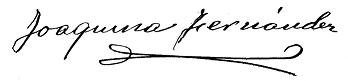 Joaquina Fernández